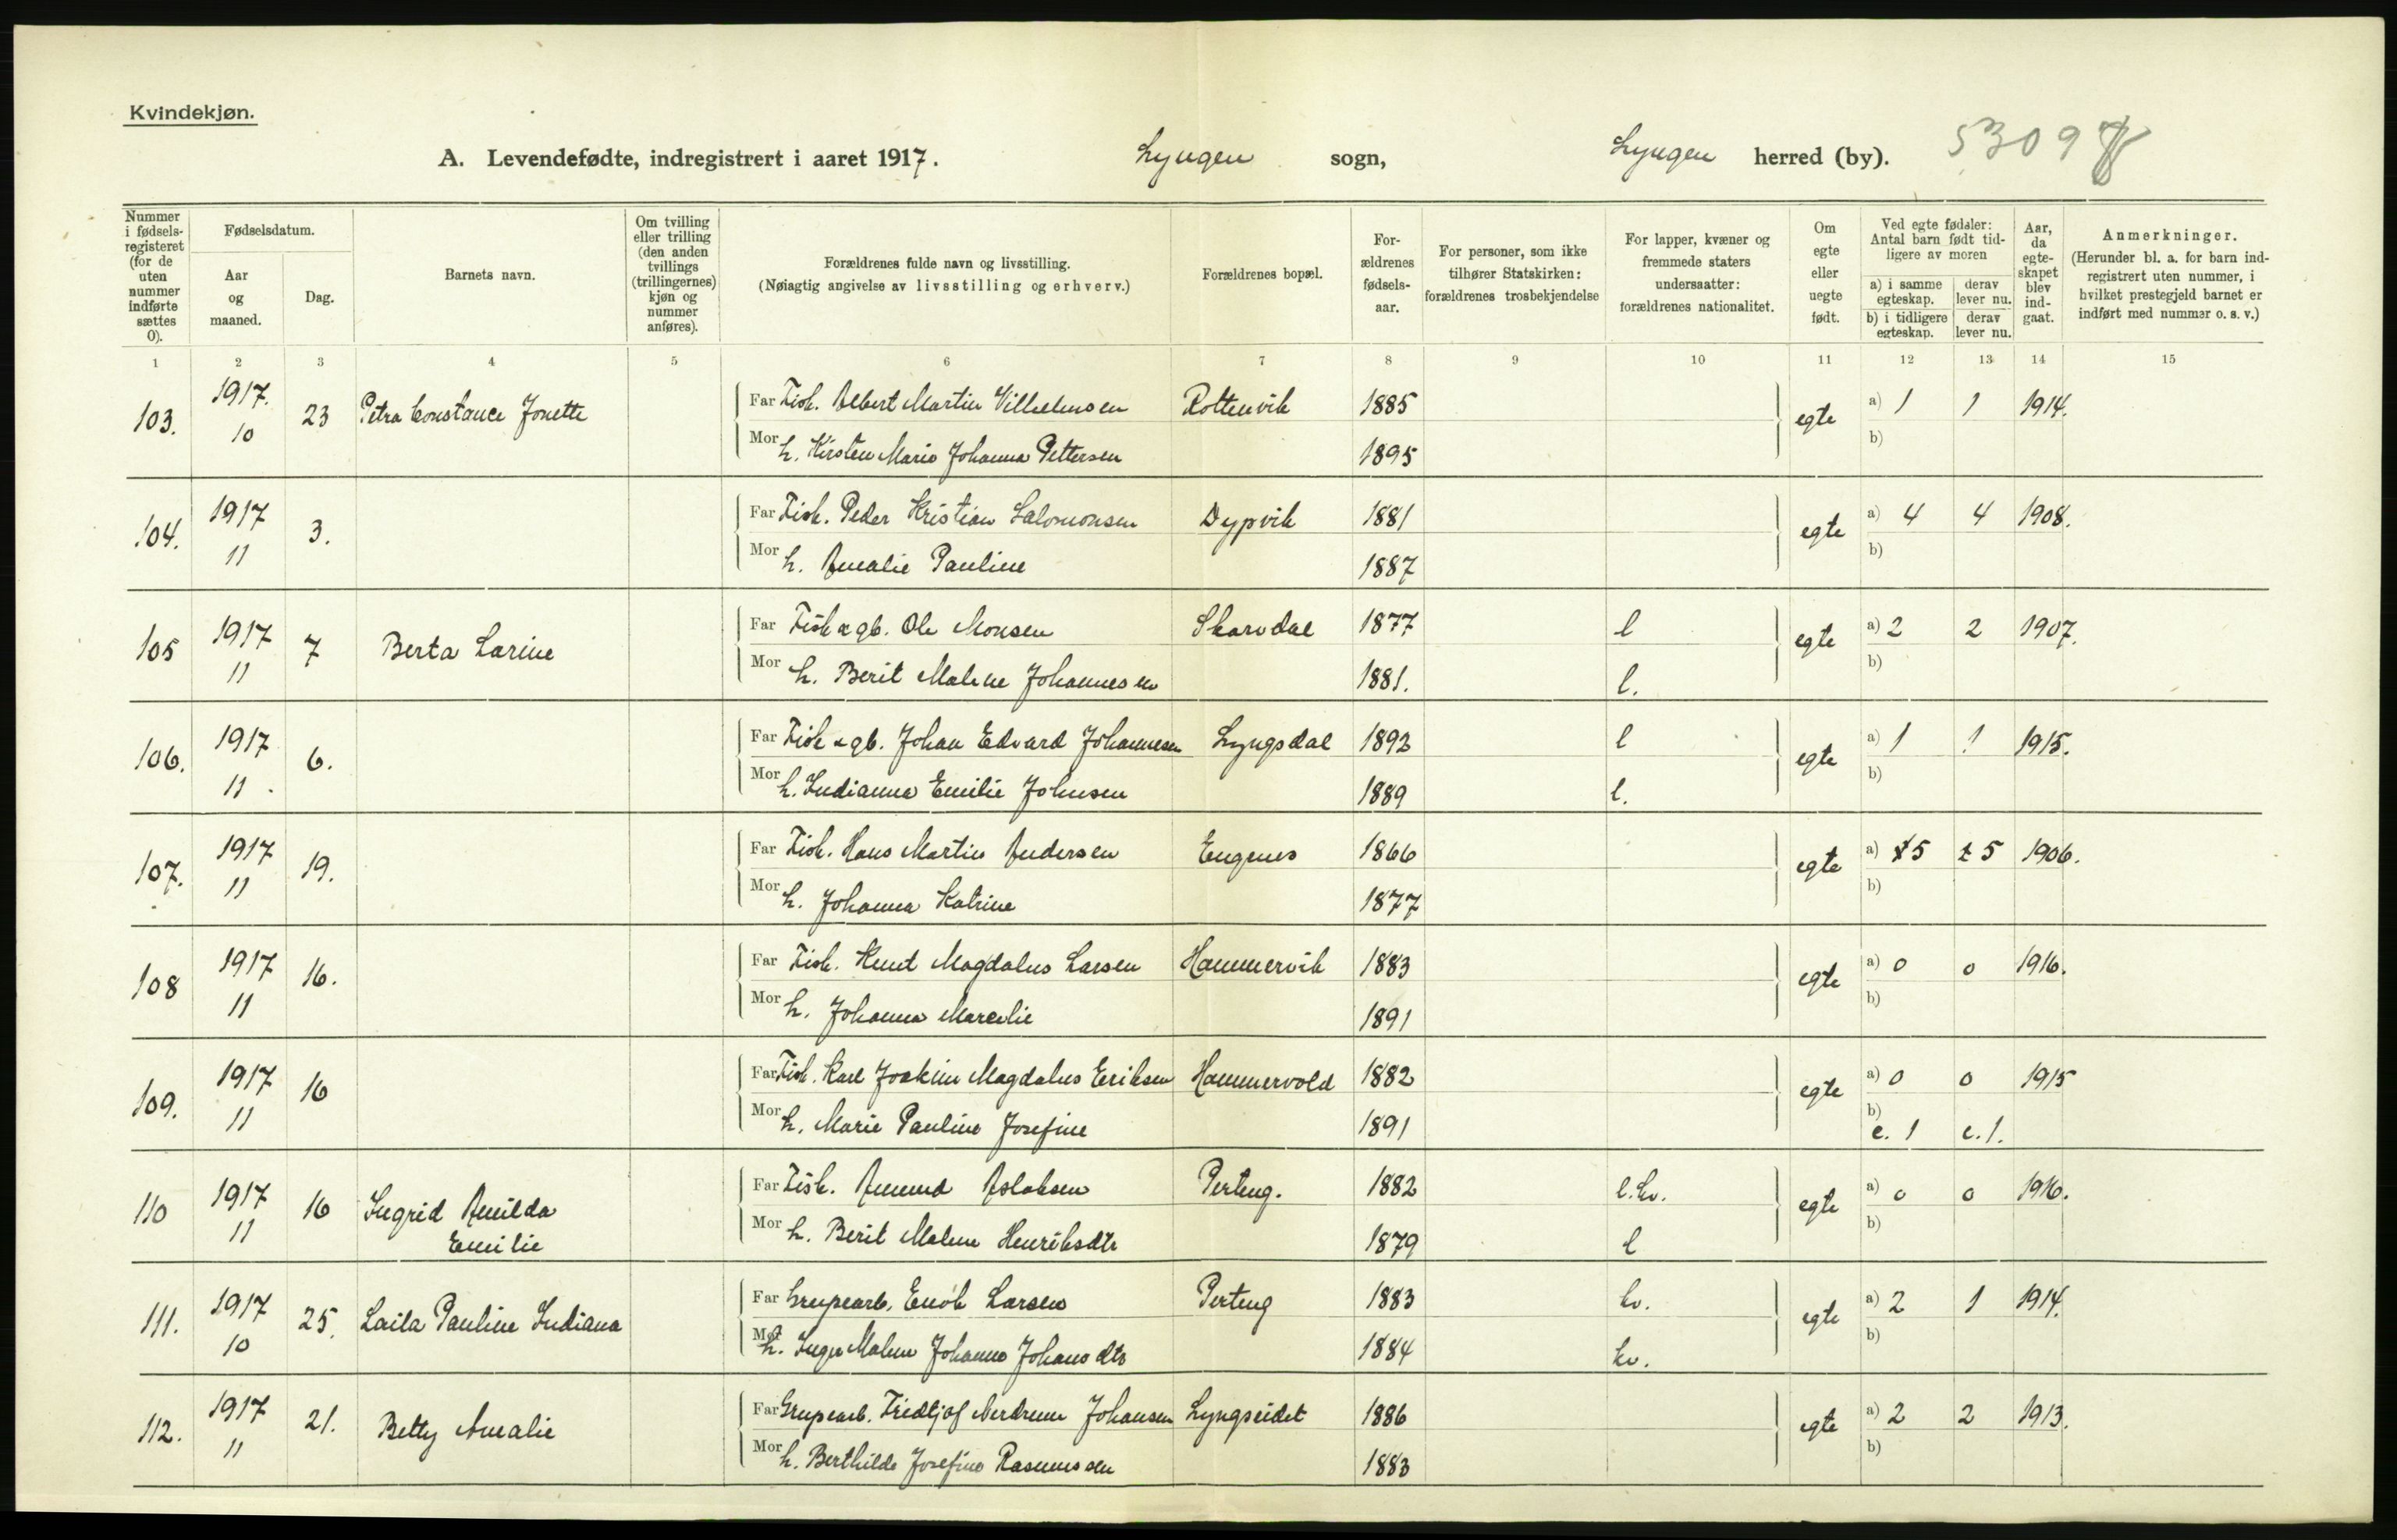 Kvindekjøn.
A. Levendefødte, indregistrert i aaret 1917. Lyngen sogn, Lyngen herred (by). 53097
Nummer i fødselsregisteret (for de uten nummer indførte sættes 0).
Fødselsdatum.
Aar og maaned.
Dag.
Barnets navn.
Om tvilling eller trilling (den anden tvillings (trillingernes) kjøn og nummer anføres).
Forældrenes fulde navn og livsstilling.
(Nøiagtig angivelse av livsstilling og erhverv.)
Forældrenes bopæl.
Forældrenes fødselsaar.
For personer, som ikke tilhører Statskirken: forældrenes trosbekjendelse
For lapper, kvæner og fremmede staters undersaatter: forældrenes nationalitet.
Om egte eller uegte født.
Ved egte fødsler: Antal barn født tidligere av moren
a) i samme egteskap. derav lever nu.
b) i tidligere egteskap. derav lever nu.
Aar, da egteskapet blev indgaat.
Anmerkninger.
(Herunder bl. a. for barn indregistrert uten nummer, i hvilket prestegjeld barnet er indført med nummer o. s. v.)
1 2 3 4 5 6 7 8 9 10 11 12 13 14 15
103. 1917. 10 23 Petra Constance Jonette Far Fisk. Albert Martin Vilhelmsen Rottenvik 1885 egte a) 1 1 1914.
Mor h. Kirsten Marie Johanna Pettersen 1895 b)
104. 1917 11 3. Far Fisk. Peder Kristian Salomonsen Dypvik 1881 egte a) 4 4 1908.
Mor h. Amalie Pauline 1887 b)
105 1917 11 7 Berta Larine Far Fisk & gb. Ole Monsen Skarvdal 1877 l egte a) 2 2 1907.
Mor h. Berit Malene Johannesen 1881. l. b)
106. 1917 11. 6. Far Fisk & gb. Johan Edvard Johannesen Lyngsdal 1892 l egte a) 1 1 1915.
Mor h. Indianna Emilie Johnsen 1889 l. b)
107. 1917 11 19. Far Fisk. Hans Martin Andersen Engenes 1866 egte a) 5 5 1906.
Mor h. Johanna Katrine 1877 b)
108 1917 11 16. Far Fisk. Knut Magdalus Larsen Hammervik 1883 egte a) 0 0 1916.
Mor h. Johanna 1891 b)
109. 1917 11 16 Far Fisk. Karl Joakim Magdalus Eriksen Hammervold 1882 egte a) 0 0 1915
Mor h. Marie Pauline Josefine 1891 b) c. 1 c. 1.
110 1917 11 16 Ingrid Amilda Far Fisk. Amund Aslaksen Perteng. 1882 l.kv. egte a) 0 0 1916.
Emilie Mor h. Berit Malene Henriksdtr 1879 l b)
111. 1917 10 25. Laila Pauline Indiana Far Grupearb. Enok Larsen Perteng 1883 kv. egte a) 2 1 1914.
Mor h. Inga Malene Johanna Johansdtr 1884 kv. b)
112. 1917 11 21. Betty Amalie Far Grupearb. Fridtjof Nerdrum Johansen Lyngseidet 1886 egte a) 2 2 1913.
Mor h. Berthilde Josefine Rasmussen 1883 b)